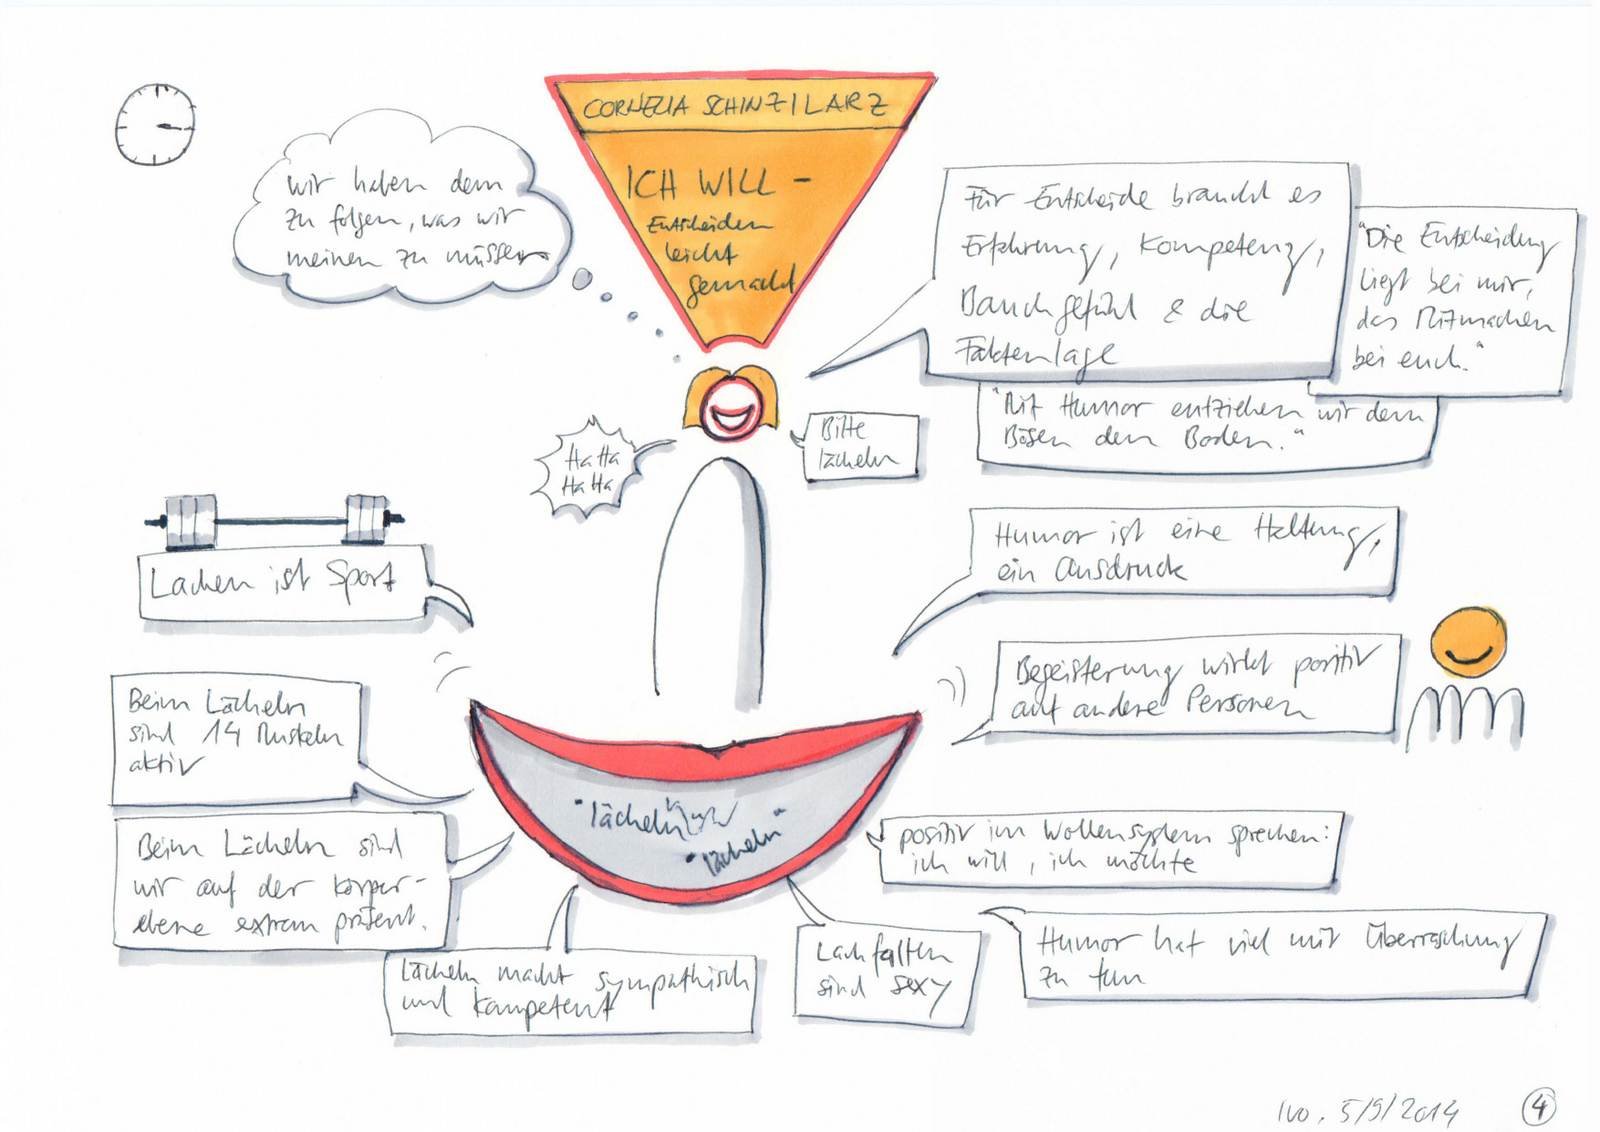 CORNELIA SCHINZILARZ
ICH WILL -
Entscheiden
leicht
gemacht
wir haben dem
zu folgen, was wir
meinen zu müssen
Für Entscheide braucht es
Erfahrung, Kompetenz,
Bauchgefühl & die
Faktenlage
"Die Entscheidung
liegt bei mir,
das Mitmachen
bei euch."
"Mit Humor entziehen wir dem
Bösen den Boden."
Bitte
lächeln
HaHa
HaHa
Lachen ist Sport
Humor ist eine Haltung,
ein Ausdruck
Begeisterung wirkt positiv
auf andere Personen
Beim Lächeln
sind 14 Muskeln
aktiv
Beim Lächeln sind
wir auf der Körper-
ebene extrem präsent.
"lächeln
"lächeln"
positiv im Wollensystem sprechen:
ich will, ich möchte
Humor hat viel mit Überraschung
zu tun
Lächeln macht sympathisch
und kompetent
Lachfalten
sind sexy
Ivo. 5/9/2014
4